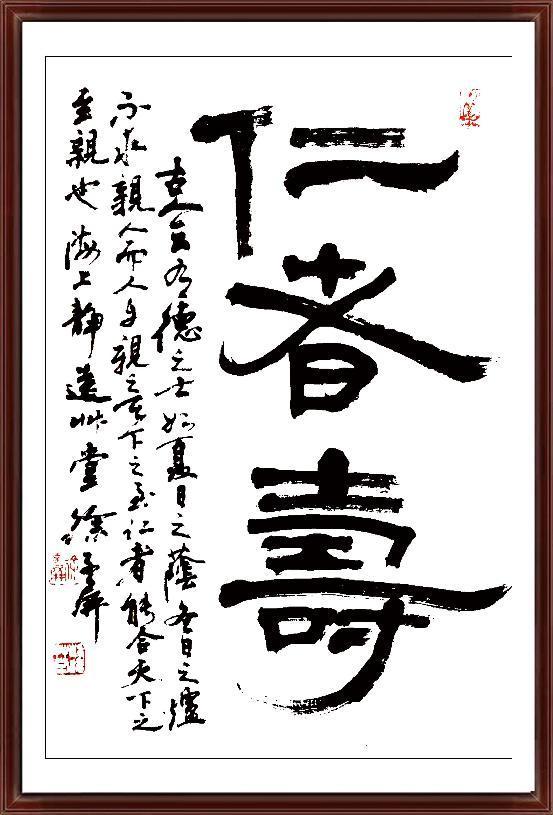 仁者壽
古人言有德之士如夏日之蔭冬日之爐
不求親人而人自親之天下之至仁者能合天下之
至親也海上靜遠艸堂徐